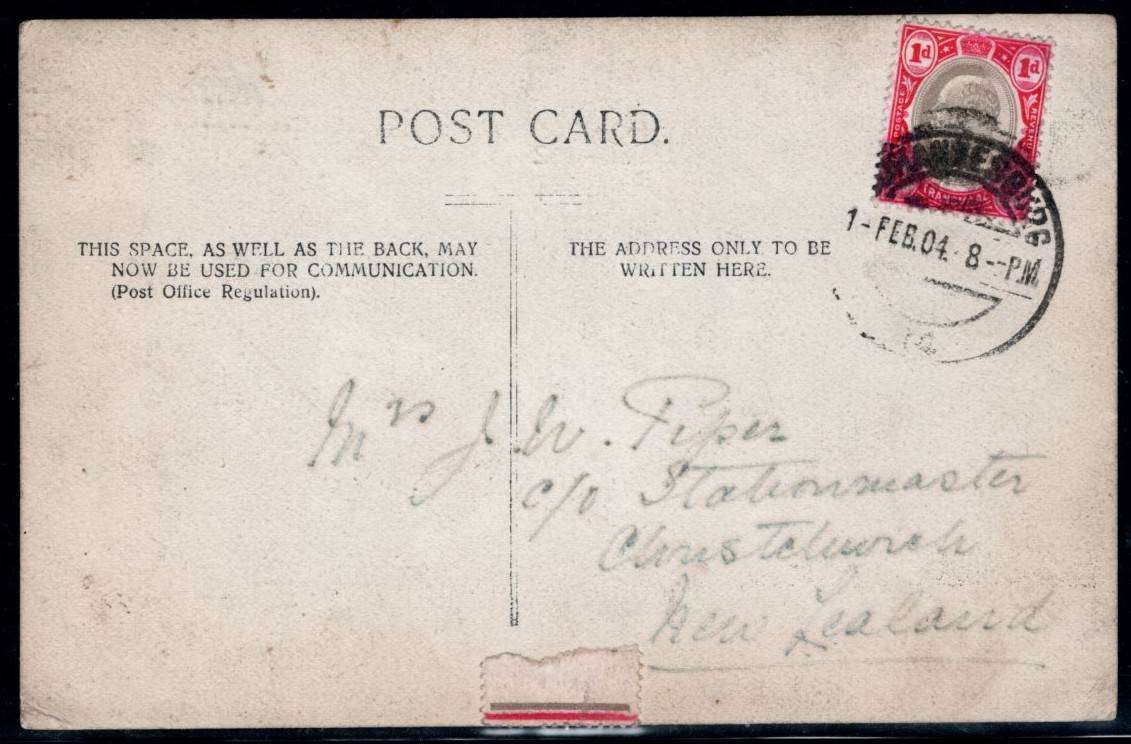 POST CARD.
1d 1d
POSTAGE REVENUE
TRANSVAAL
1-FEB.04. 8--P.M.
THIS SPACE, AS WELL AS THE BACK, MAY
NOW BE USED FOR COMMUNICATION.
(Post Office Regulation).
THE ADDRESS ONLY TO BE
WRITTEN HERE.
Mrs J. W. Piper
c/o Stationmaster
Christchurch
New Zealand